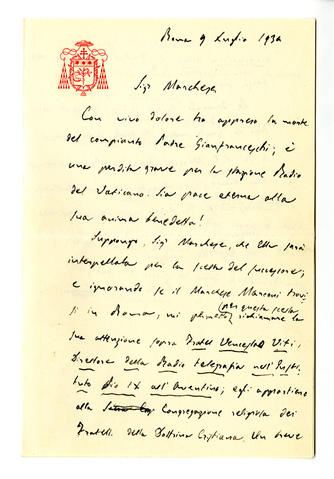 Roma 9 Luglio 1934
Sigr Marchese
Con vivo dolore ho appreso la morte
del compianto Padre Gianfranceschi; è
una perdita grave per la stazione Radio
del Vaticano. Sia pace eterna alla
sua anima benedetta!
Suppongo, Sigr Marchese, che Ella sarà
interpellata per la scelta del successore;
e ignorando se il Marchese Marconi trovi
si in Roma, mi permetto (per questa scelta) richiamare la
sua attenzione sopra Fratel Venceslao Viti,
Direttore della Radio telegrafia nell'Isti
tuto Pio IX all'Aventino; egli appartiene
alla Congregazione religiosa dei
Fratelli della Dottrina Cristiana. Un breve